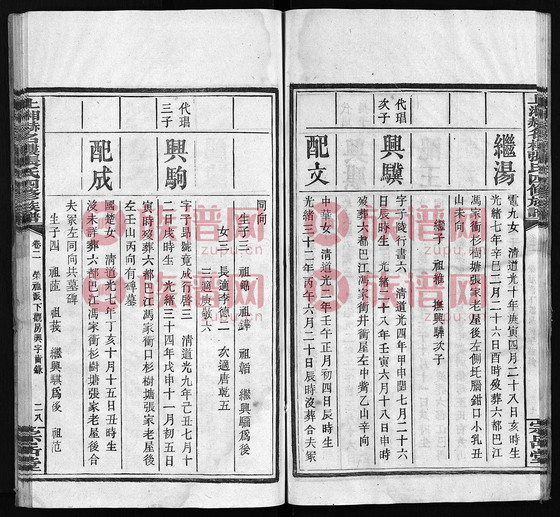 繼湯
電九女 清道光十年庚寅四月二十八日亥時生
光緒七年辛巳二月二十六日酉時歿葬六都巴江
馮家衝杉樹塘張家老屋後左側坵腦鉗口小乳丑
山未向
繼子 祖雄 撫興驊次子
代琩
次子
興驥
字子陵行書六 清道光四年甲申七月二十六
日辰時生 光緒二十八年壬寅六月十八日申時
歿葬六都巴江馮家衝井衝屋左中嘴乙山辛向
配文
中華女 清道光二年壬午正月初四日辰時生
光緒三十二年丙午六月二十日辰時沒葬合夫冢
同向
生子三 祖錦 祖 祖朝 繼興驦為後
生女三 長適李德二 次適唐乾五
三適庾敬六
代琩
三子
興駒
字子昂號竟成行啓三 清道光九年己丑七月十
二日戌時生 光緒三十四年戊申十一月初五日
寅時歿葬六都巴江馮家衝口杉樹塘張家老屋後
左壬山丙向有碑墓
配成
國楚女 清道光七年丁亥十月十五日丑時生
沒未詳葬六都巴江馮家衝杉樹塘張家老屋後合
夫冢左同向共墓碑
生子四 祖 祖莪 繼興騏為後 祖范
卷二 榮祖派下觀房興字齒錄
二八